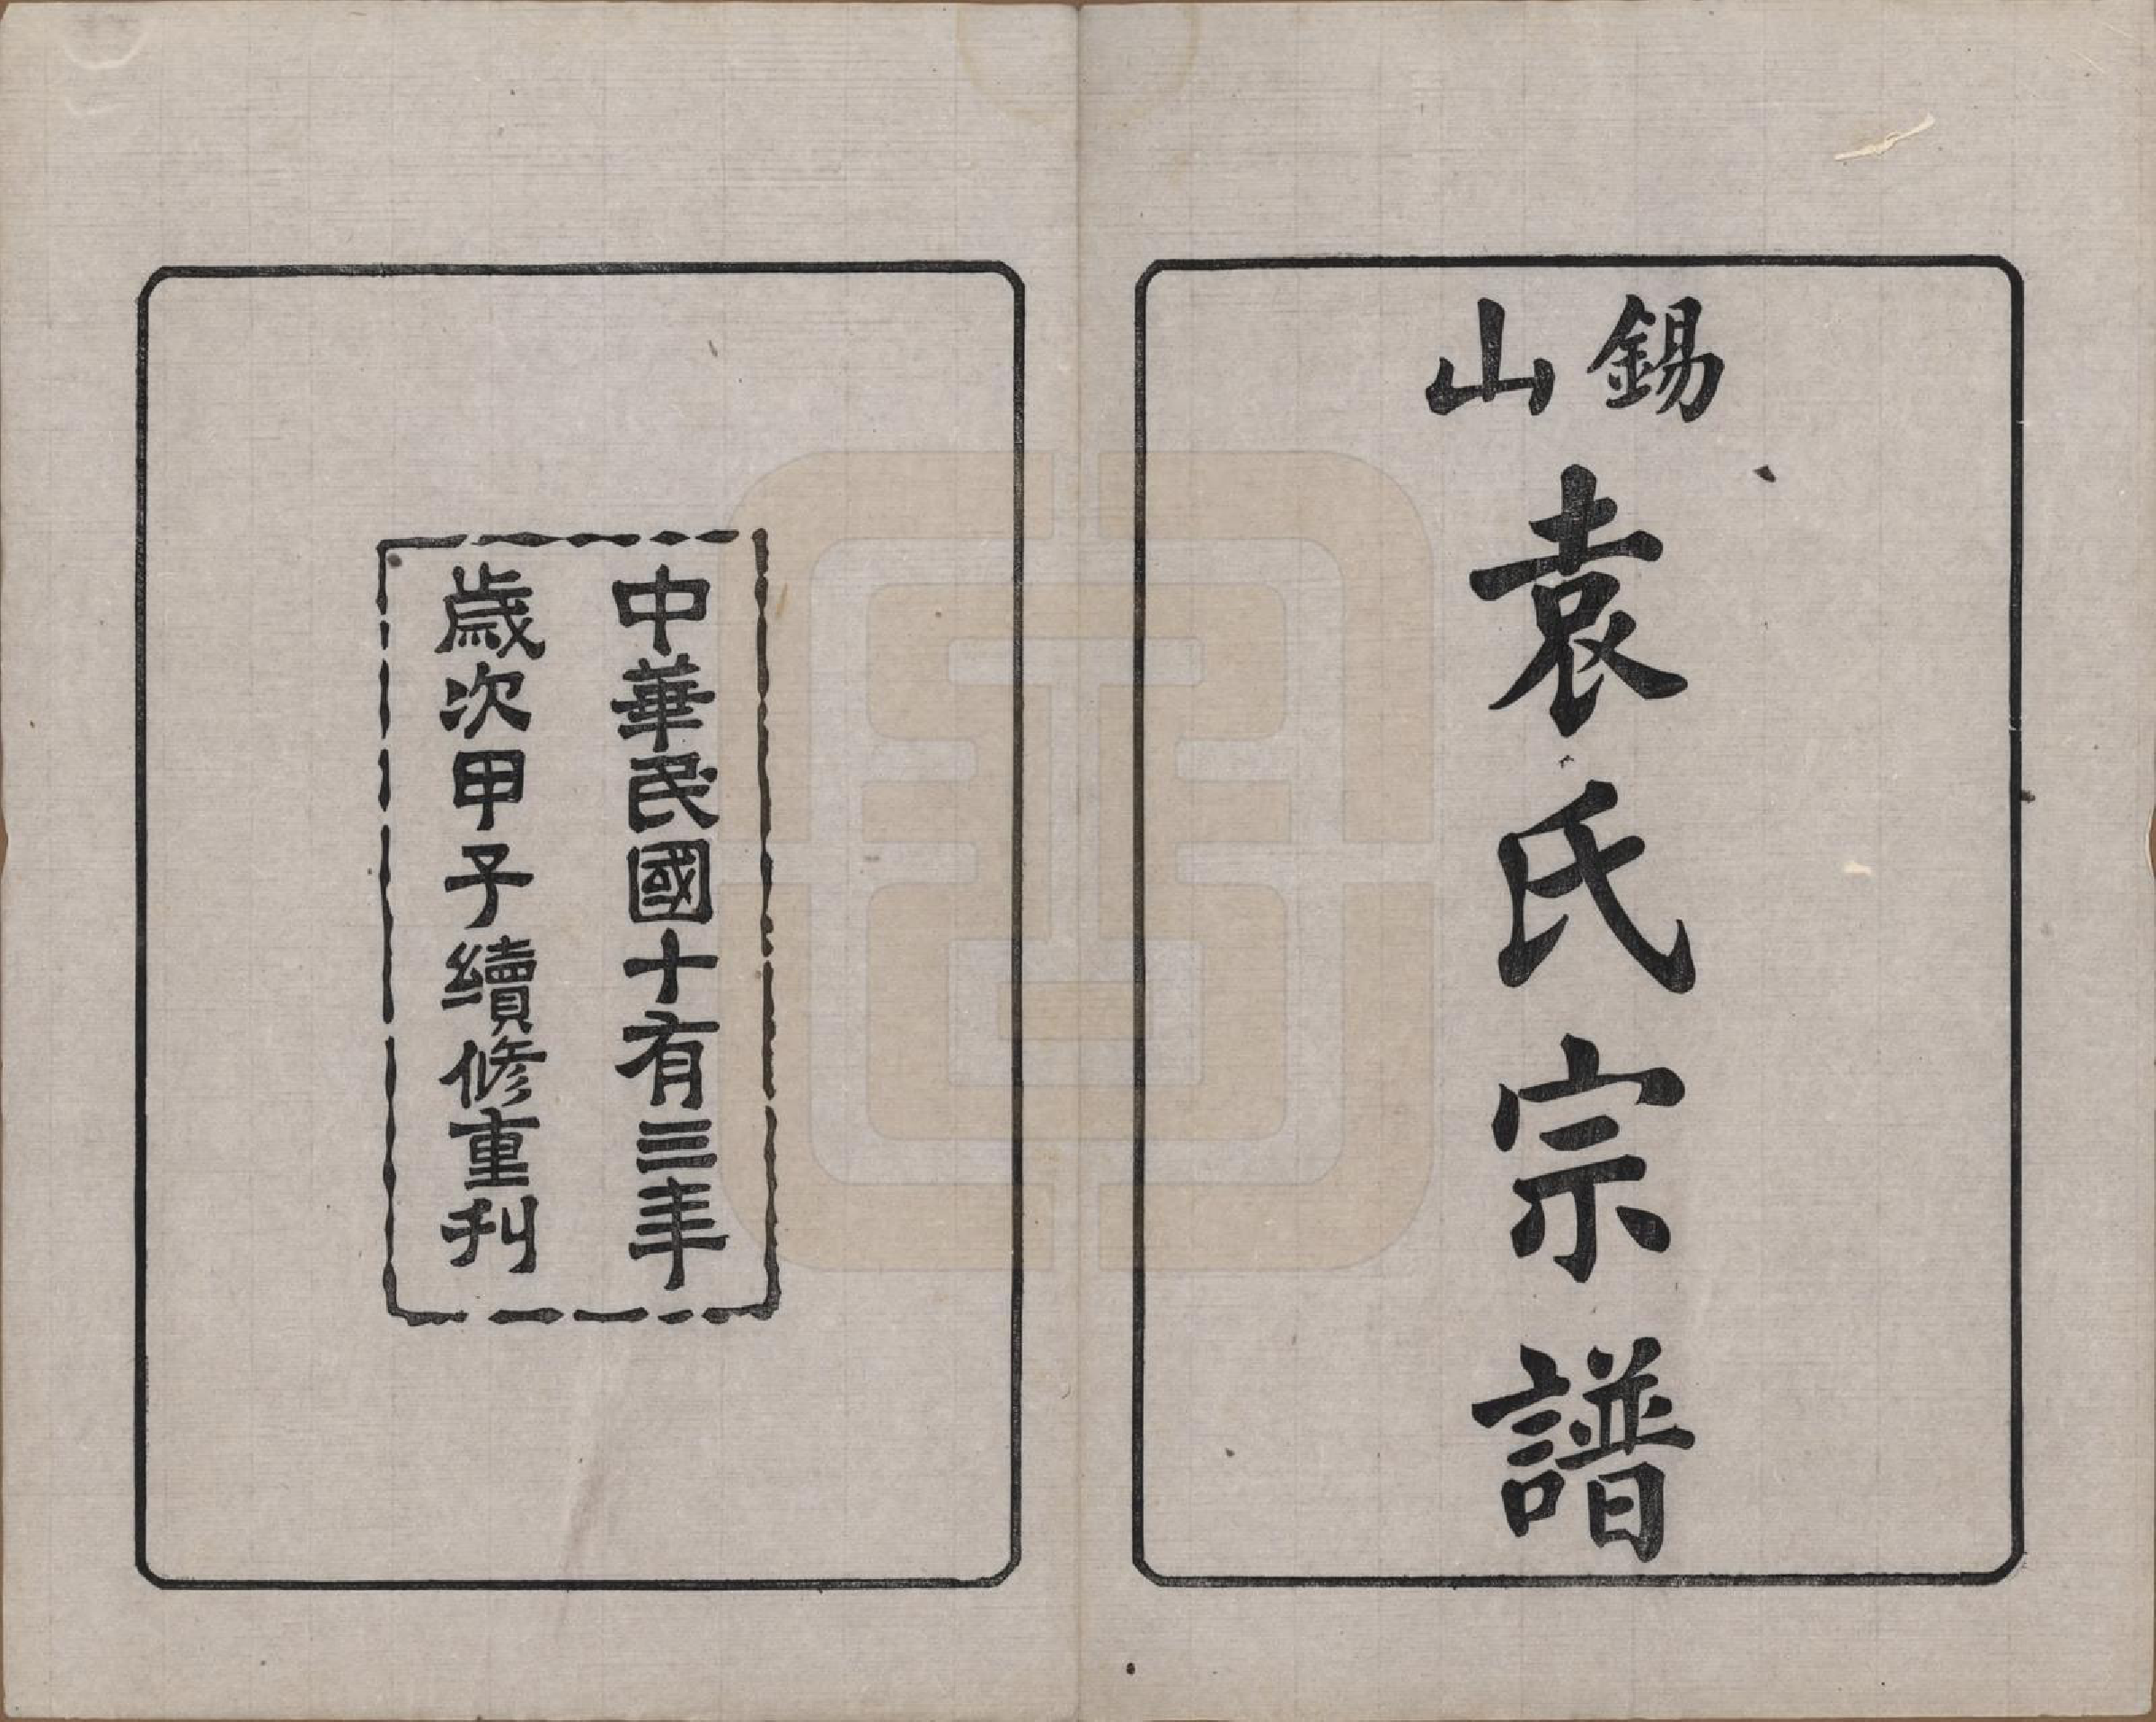 錫山
袁氏宗譜
中華民國十有三年
歲次甲子續修重刋